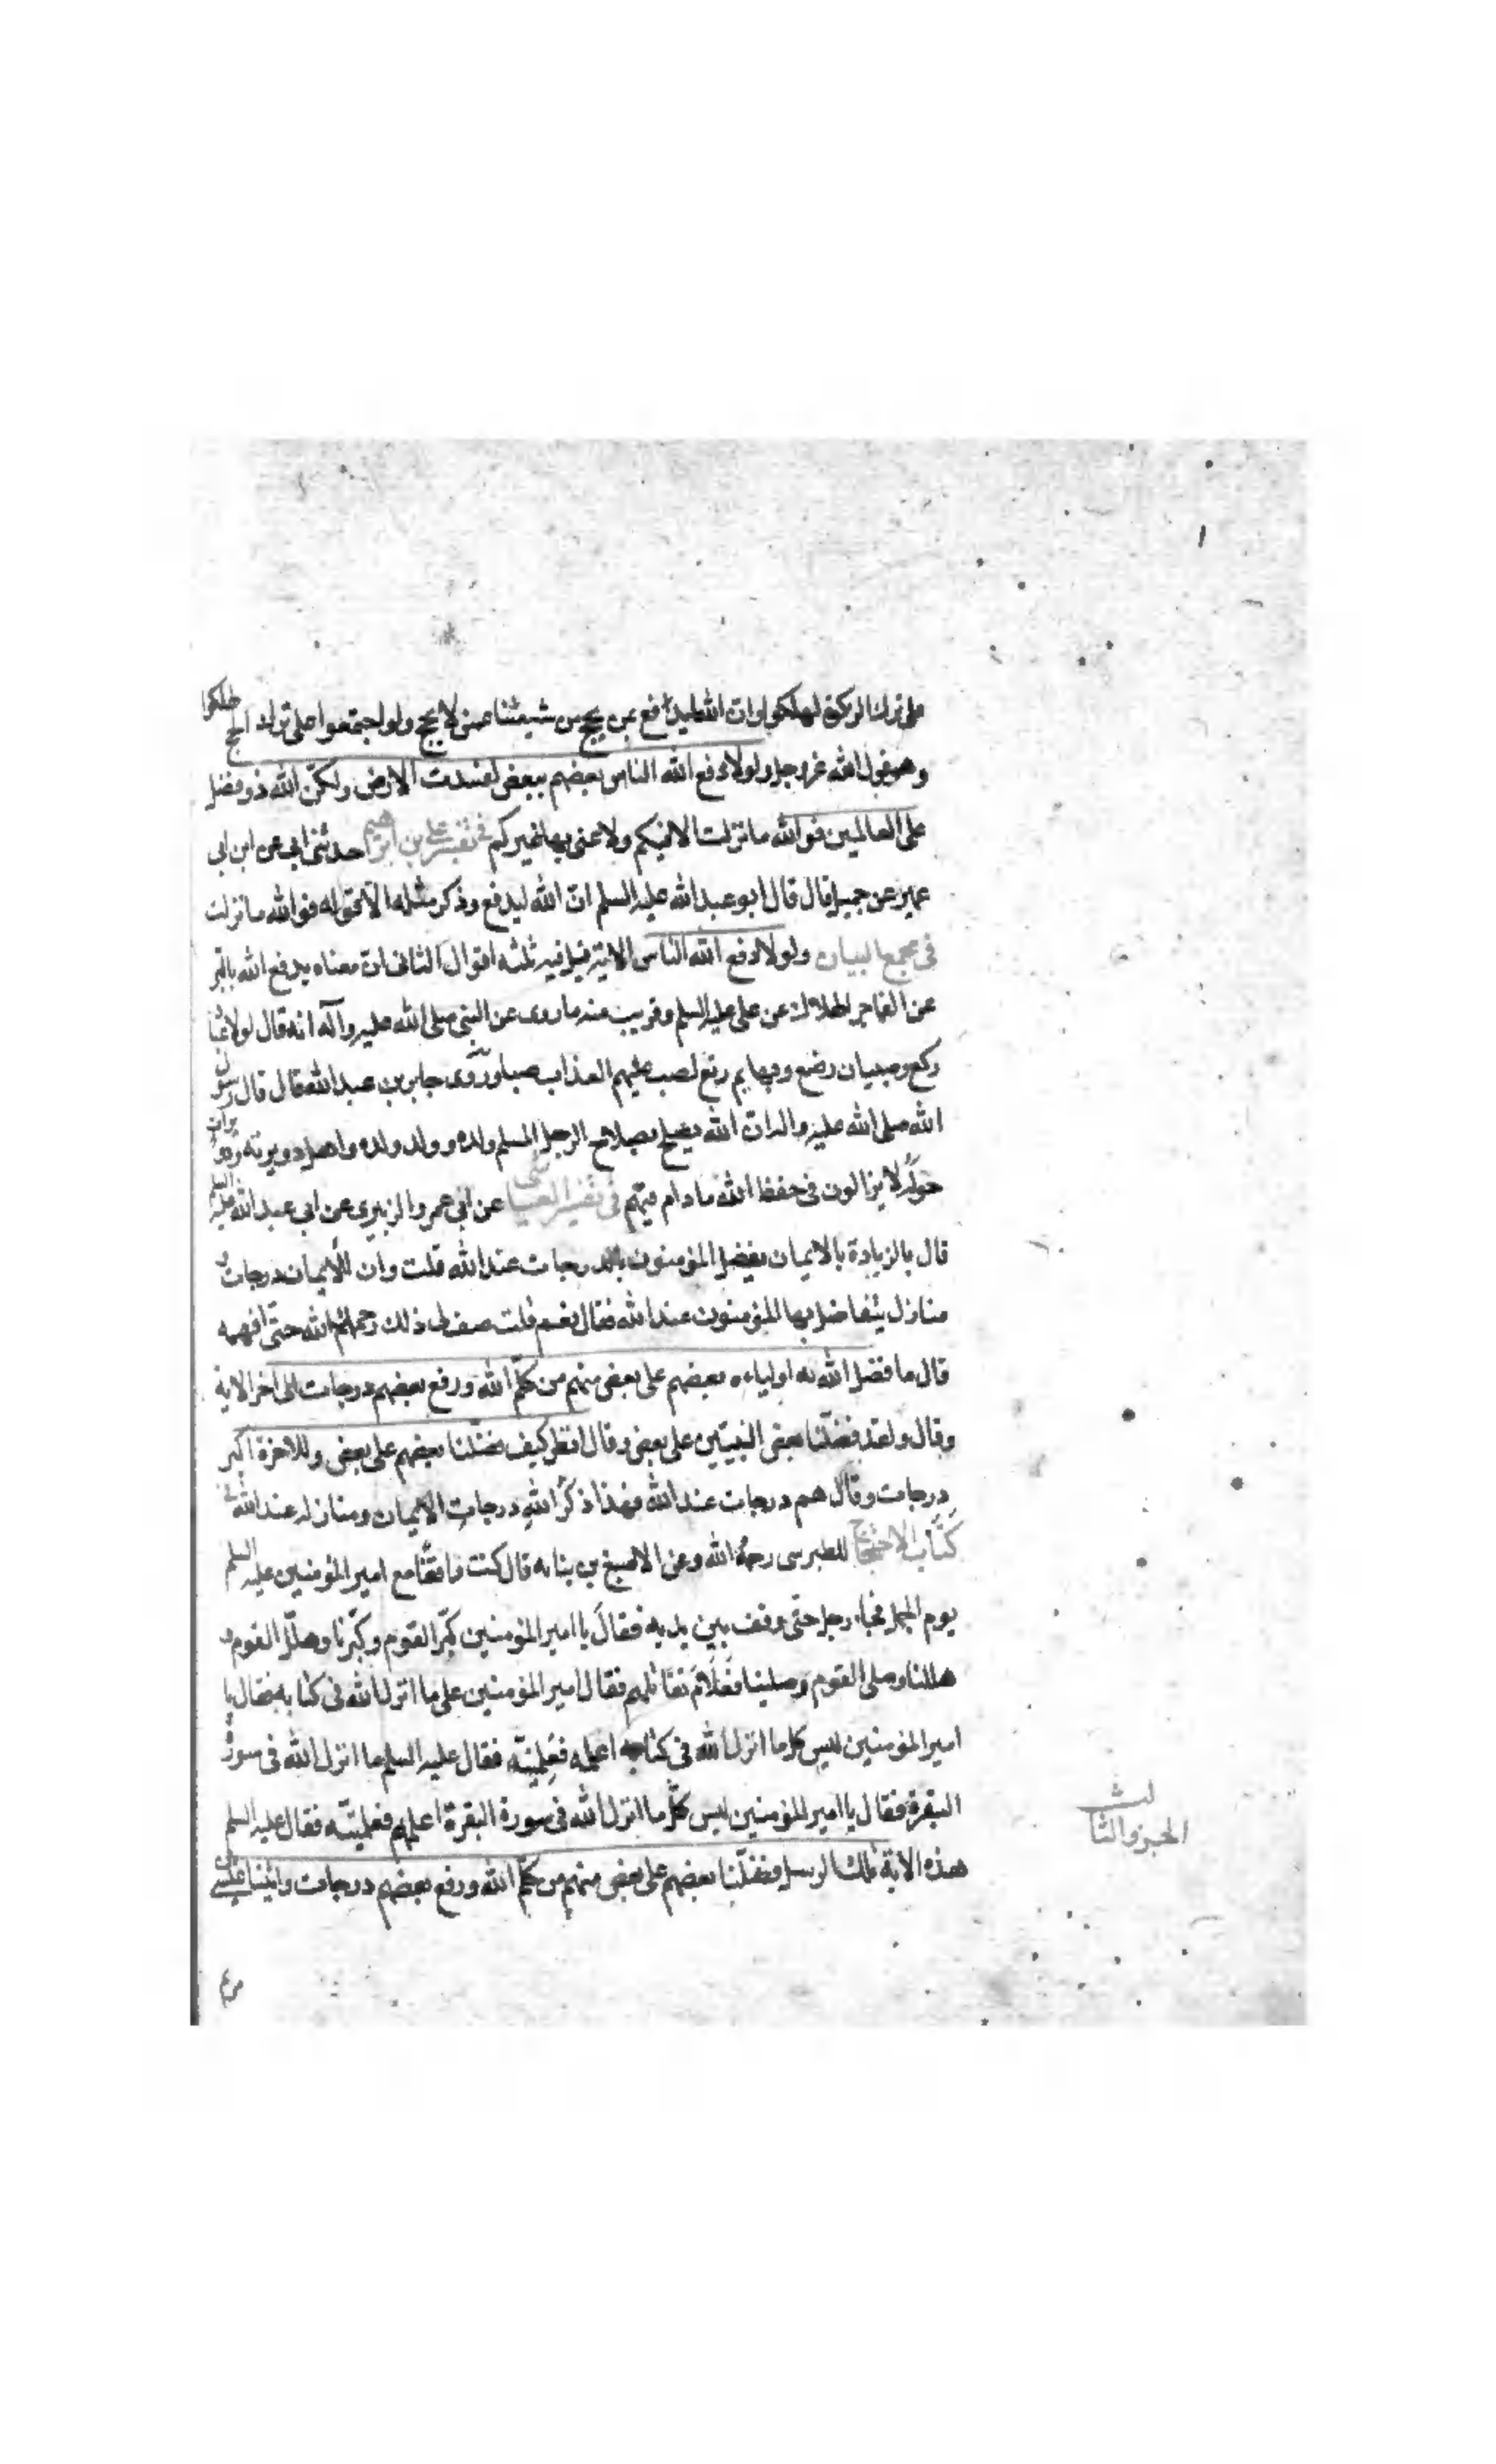 على ترك الزكوة لهلكوا وان الله ليدفع بمن يحج من شيعتنا عمن لا يحج ولو اجتمعوا على ترك الحج لهلكوا
وهو قول الله عز وجل ولولا دفع الله الناس بعضهم ببعض لفسدت الارض ولكن الله ذو فضل
على العالمين فوالله ما نزلت الا فيكم ولا عنى بها غيركم في تفسير على بن ابرهيم حدثنى ابى عن ابن ابى
عمير عن جميل قال قال ابو عبد الله عليه السلم ان الله ليدفع وذكر مثله الا قوله فوالله ما نزلت
في مجمع البيان ولولا دفع الله الناس الاية قيل فيه ثلثه اقوال الثانى ان معناه يدفع الله بالبر
عن الفاجر الهلاك عن على عليه السلم وقريب منه ما روى عن النبى صلى الله عليه وآله انه قال لولا عباد
ركع وصبيان رضع وبهايم رتع لصب عليهم العذاب صبا وروى جابر بن عبد الله قال قال رسول
الله صلى الله عليه واله ان الله يصلح بصلاح الرجل المسلم ولده وولد ولده واهل دويرته ودويرات
حوله لا يزالون فى حفظ الله ما دام فيهم في تفسير العياشى عن ابى عمرو الزبيرى عن ابى عبد الله عليه السلم
قال بالزيادة بالايمان يفضل المؤمنون بالدرجات عند الله قلت وان للايمان درجات و
منازل يتفاضل بها المؤمنون عند الله فقال نعم قلت صف لى ذلك رحمك الله حتى افهمه
قال ما فضل الله به اولياءه بعضهم على بعض منهم من كلم الله ورفع بعضهم درجات الى اخر الاية
وقال ولقد فضلنا بعض النبيين على بعض وقال انظر كيف فضلنا بعضهم على بعض وللاخرة اكبر
درجات وقال هم درجات عند الله فهذا ذكر الله درجات الايمان ومنازله عند الله
كتاب الاحتجاج للطبرسى رحمه الله وعن الاصبغ بن بناته قال كنت واقفا مع امير المؤمنين عليه السلم
يوم الجمل فجاء رجل حتى وقف بين يديه فقال يا امير المؤمنين كبر القوم وكبرنا وهلل القوم و
هللنا وصلى القوم وصلينا فعلام نقاتلهم فقال امير المؤمنين على ما انزل الله فى كتابه فقال يا
امير المؤمنين ليس كل ما انزل الله فى كتابه اعلمه فعلمنيه فقال عليه السلم ما انزل الله فى سورة
البقرة فقال يا امير المؤمنين ليس كل ما انزل الله فى سورة البقرة اعلمه فعلمنيه فقال عليه السلم
هذه الاية تلك الرسل فضلنا بعضهم على بعض منهم من كلم الله ورفع بعضهم درجات واتينا عيسى
الجزو الثالث